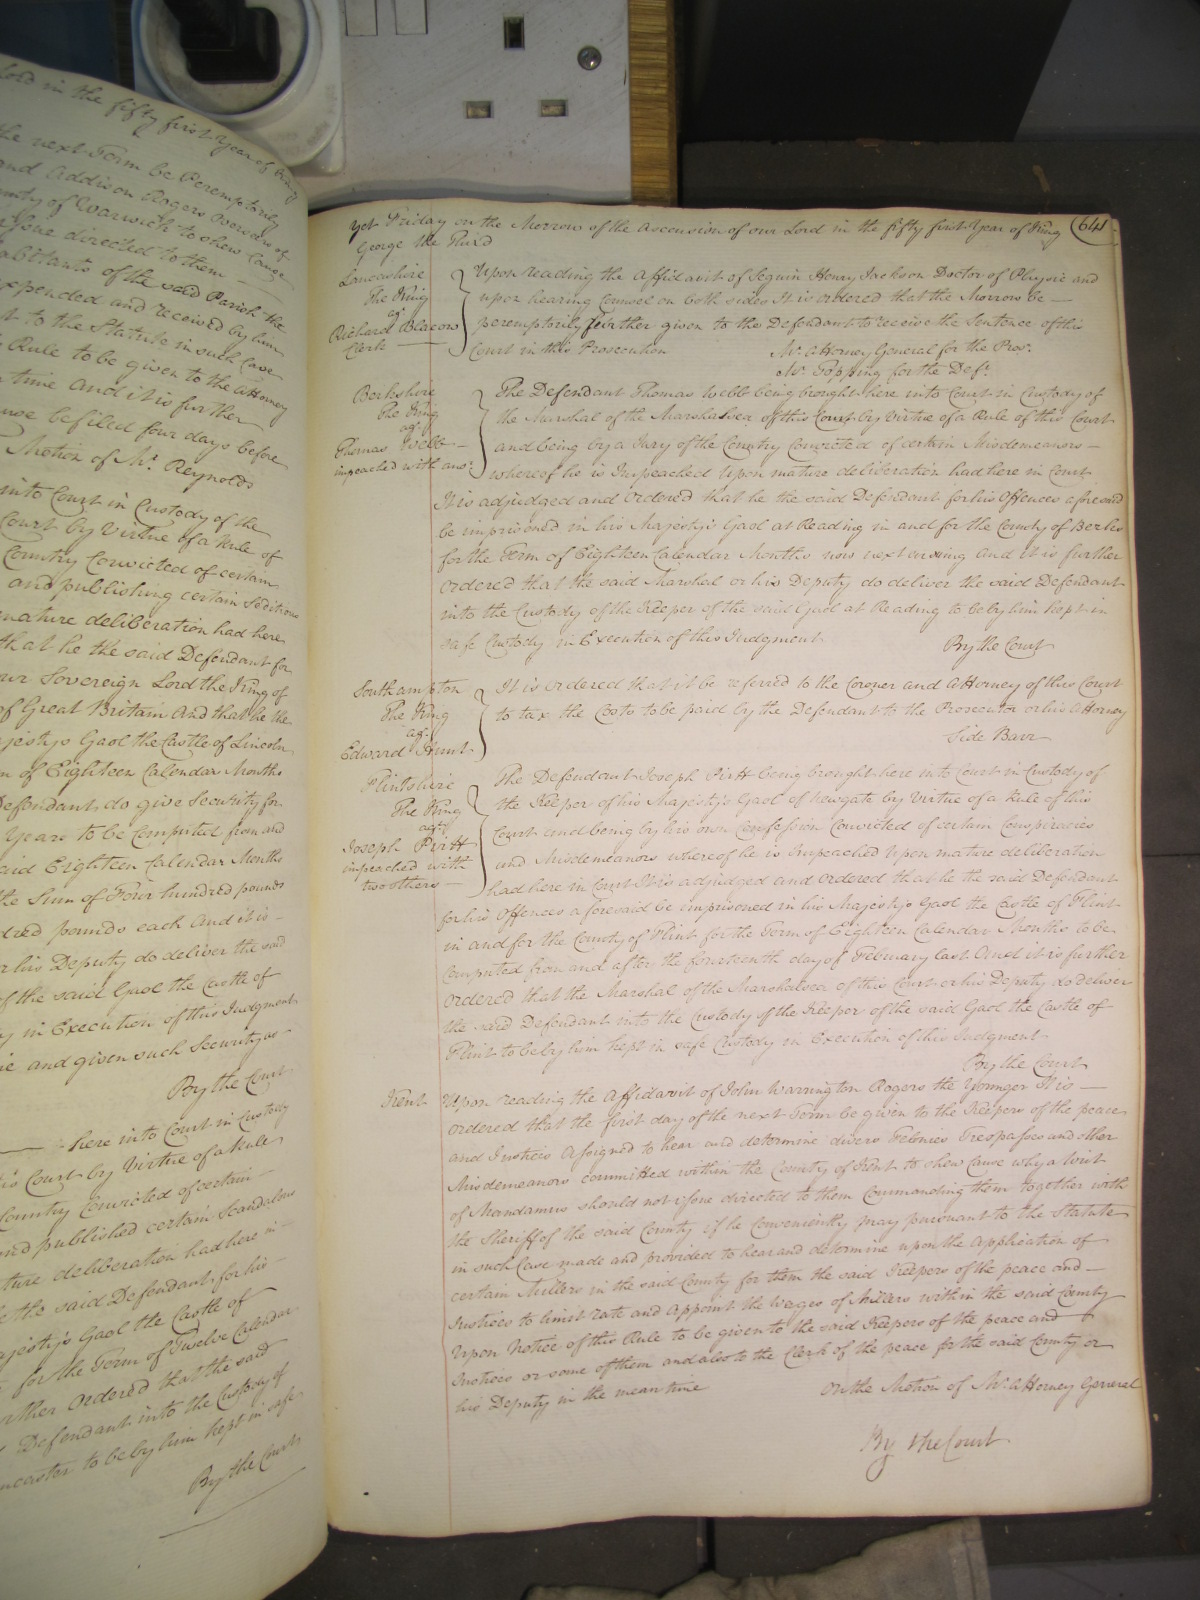 Lord in the fifty first Year of King
the next Term be Peremptorily
and Addison Rogers Overseers of
County of Warwick to shew Cause
issue directed to them
Inhabitants of the said Parish the
expended and received by him
to the Statute in such Case
Rule to be given to the Attorney
time And it is further
cause be filed four days before
Motion of Mr. Reynolds
into Court in Custody of the
Court by Virtue of a Rule of
Country Convicted of certain
and publishing certain Seditious
mature deliberation had here
that he the said Defendant for
our Sovereign Lord the King of
of Great Britain And that he the
Majesty's Gaol the Castle of Lincoln
of Eighteen Calendar Months
Defendant do give Security for
Years to be computed from and
said Eighteen Calendar Months
the Sum of Four hundred pounds
hundred pounds each And it is
or his Deputy do deliver the said
of the said Gaol the Castle of
in Execution of this Judgment
and given such Security as
By the Court
here into Court in Custody
this Court by Virtue of a Rule
Country Convicted of certain
and published certain Scandalous
mature deliberation had here in
the said Defendant for his
Majesty's Gaol the Castle of
for the Term of Twelve Calendar
further Ordered that the said
Defendant into the Custody of
Lancaster to be by him kept in safe
By the Court
Yet Friday on the Morrow of the Ascension of our Lord in the fifty first Year of King (64)
George the Third
Lancashire
The King
agt.
Richard Blacow
Clerk
Upon reading the Affidavit of Seguin Henry Jackson Doctor of Physic and
upon hearing Counsel on both sides It is ordered that the Morrow be
peremptorily further given to the Defendant to receive the Sentence of this
Court in this Prosecution
Mr. Attorney General for the Pros:
Mr. Topping for the Deft.
Berkshire
The King
agt.
Thomas Webb
impeached with anor.
The Defendant Thomas Webb being brought here into Court in Custody of
the Marshal of the Marshalsea of this Court by Virtue of a Rule of this Court
and being by a Jury of the Country Convicted of certain Misdemeanors
whereof he is Impeached Upon mature deliberation had here in Court
It is adjudged and Ordered that he the said Defendant for his Offences aforesaid
be imprisoned in his Majesty's Gaol at Reading in and for the County of Berks
for the Term of Eighteen Calendar Months now next ensuing And it is further
Ordered that the said Marshal or his Deputy do deliver the said Defendant
into the Custody of the Keeper of the said Gaol at Reading to be by him kept in
safe Custody in Execution of this Judgment
By the Court
Southampton
The King
agt.
Edward Hunt
It is Ordered that it be referred to the Coroner and Attorney of this Court
to tax the Costs to be paid by the Defendant to the Prosecutor or his Attorney
Side Barr
Flintshire
The King
agt.
Joseph Pitt
impeached with
two others
The Defendant Joseph Pitt being brought here into Court in Custody of
the Keeper of his Majesty's Gaol of Newgate by Virtue of a Rule of this
Court and being by his own Confession Convicted of certain Conspiracies
and Misdemeanors whereof he is Impeached Upon mature deliberation
had here in Court It is adjudged and Ordered that he the said Defendant
for his Offences aforesaid be imprisoned in his Majesty's Gaol the Castle of Flint
in and for the County of Flint for the Term of Eighteen Calendar Months to be
Computed from and after the fourteenth day of February last And it is further
Ordered that the Marshal of the Marshalsea of this Court or his Deputy do deliver
the said Defendant into the Custody of the Keeper of the said Gaol the Castle of
Flint to be by him kept in safe Custody in Execution of this Judgment
By the Court
Kent
Upon reading the Affidavit of John Warrington Rogers the Younger It is
Ordered that the first day of the next Term be given to the Keepers of the peace
and Justices Assigned to hear and determine divers Felonies Trespasses and other
Misdemeanors committed within the County of Kent to shew Cause why a Writ
of Mandamus should not issue directed to them Commanding them together with
the Sheriff of the said County if he Conveniently may pursuant to the Statute
in such Case made and provided to hear and determine upon the Application of
certain Millers in the said County for them the said Keepers of the peace and
Justices to limit rate and appoint the Wages of Millers within the said County
Upon Notice of this Rule to be given to the said Keepers of the peace and
Justices or some of them and also to the Clerk of the peace for the said County or
his Deputy in the mean time
On the Motion of Mr. Attorney General
By the Court